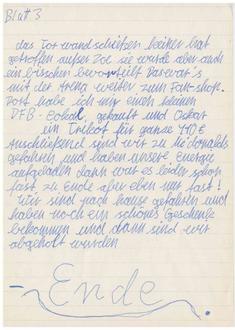 Blatt 3
das Torwandschießen keiner hat
getroffen außer Zoe sie wurde aber auch
ein bisschen bevorteilt Das war's
mit der Arena weiter zum Fan-shop.
Dort habe ich mir einen kleinen
DFB-Pokal, gekauft und Oskar
ein Trikot für ganze 110€
Anschließend sind wir zu Mc donalds
gefahren und haben unsere Energie
aufgeladen dann war es leider schon
fast zu Ende aber eben nur fast!
Wir sind nach hause gefahren und
haben noch ein schönes Geschenk
bekommen und dann sind wir
abgeholt wurden
Ende